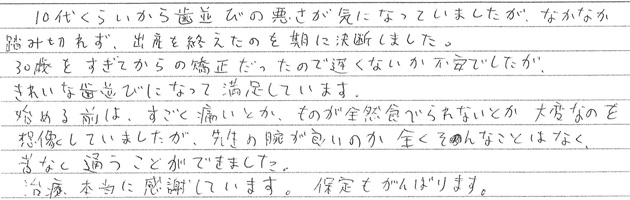 10代くらいから歯並びの悪さが気になっていましたが、なかなか
踏み切れず、出産を終えたのを期に決断しました。
30歳をすぎてからの矯正だったので遅くないか不安でしたが、
きれいな歯並びになって満足しています。
始める前は、すごく痛いとか、ものが全然食べられないとか大変なのを
想像していましたが、先生の腕が良いのか全くそんなことはなく、
苦なく通うことができました。
治療、本当に感謝しています。保定もがんばります。